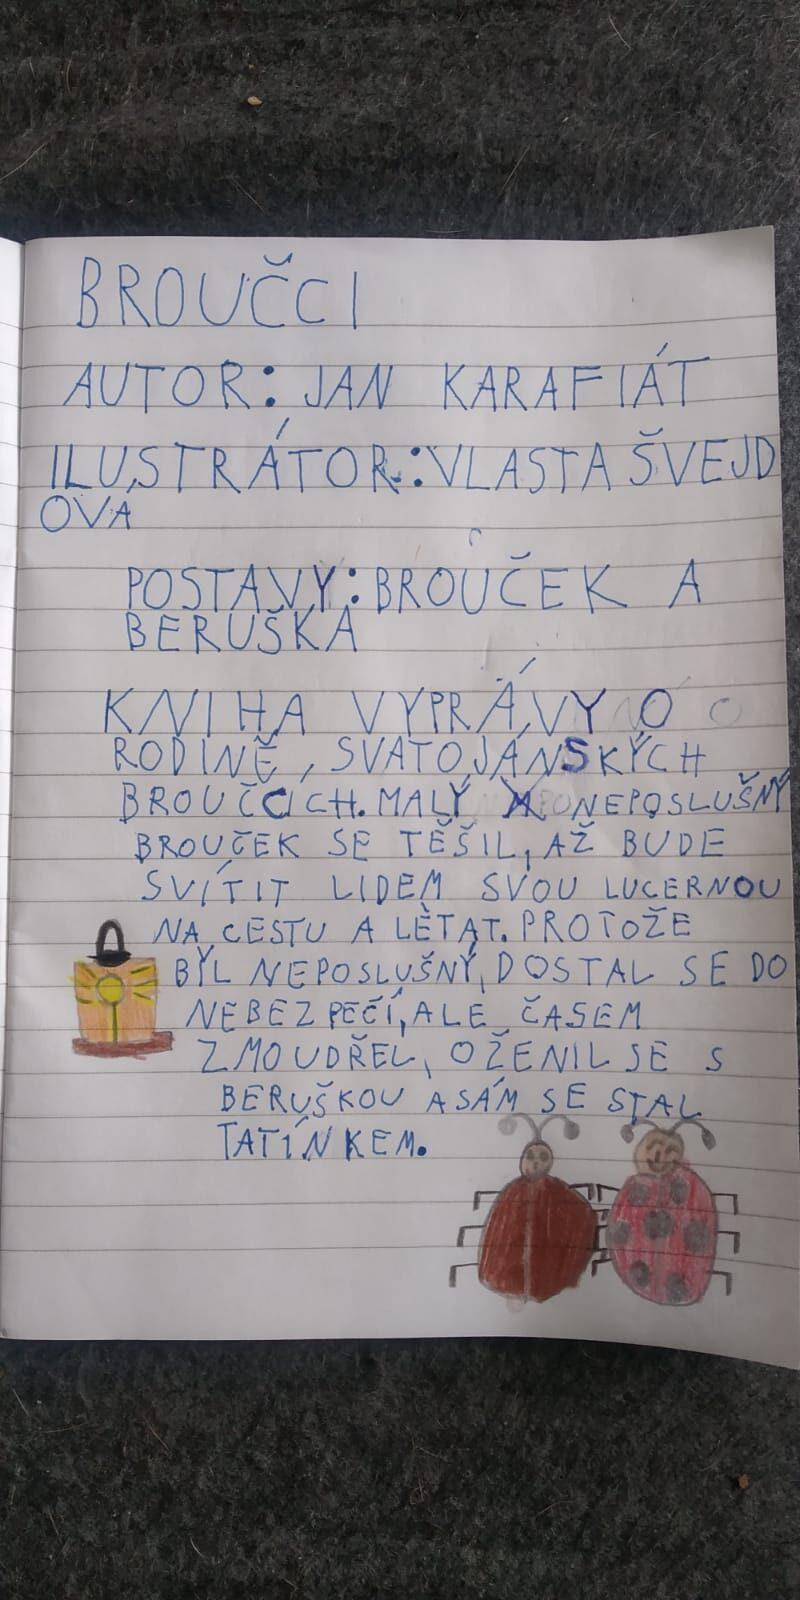 BROUČCI
AUTOR: JAN KARAFIÁT
ILUSTRÁTOR.:VLASTA ŠVEJD
OVÁ
POSTAVY: BROUČEK A
BERUŠKA
KNIHA VYPRÁVY O
RODINĚ, SVATOJÁNSKÝCH
BROUČCICH. MALÝ NEPOSLUŠNÝ
BROUČEK SE TĚŠIL, AŽ BUDE
SVÍTIT LIDEM SVOU LUCERNOU
NA CESTU A LÈTAT. PROTOŽE
BYL NEPOSLUŠNÝ, DOSTAL SE DO
NEBEZPEČÍ, ALE ČASEM
ZMOUDŘEL, OŽENIL SE S
BERUŠKOU A SÁM SE STAL
TATÍNKEM.